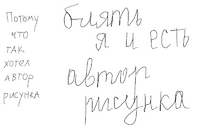 Потому
что
так
хотел
автор
рисунка
блять
я и есть
автор
рисунка